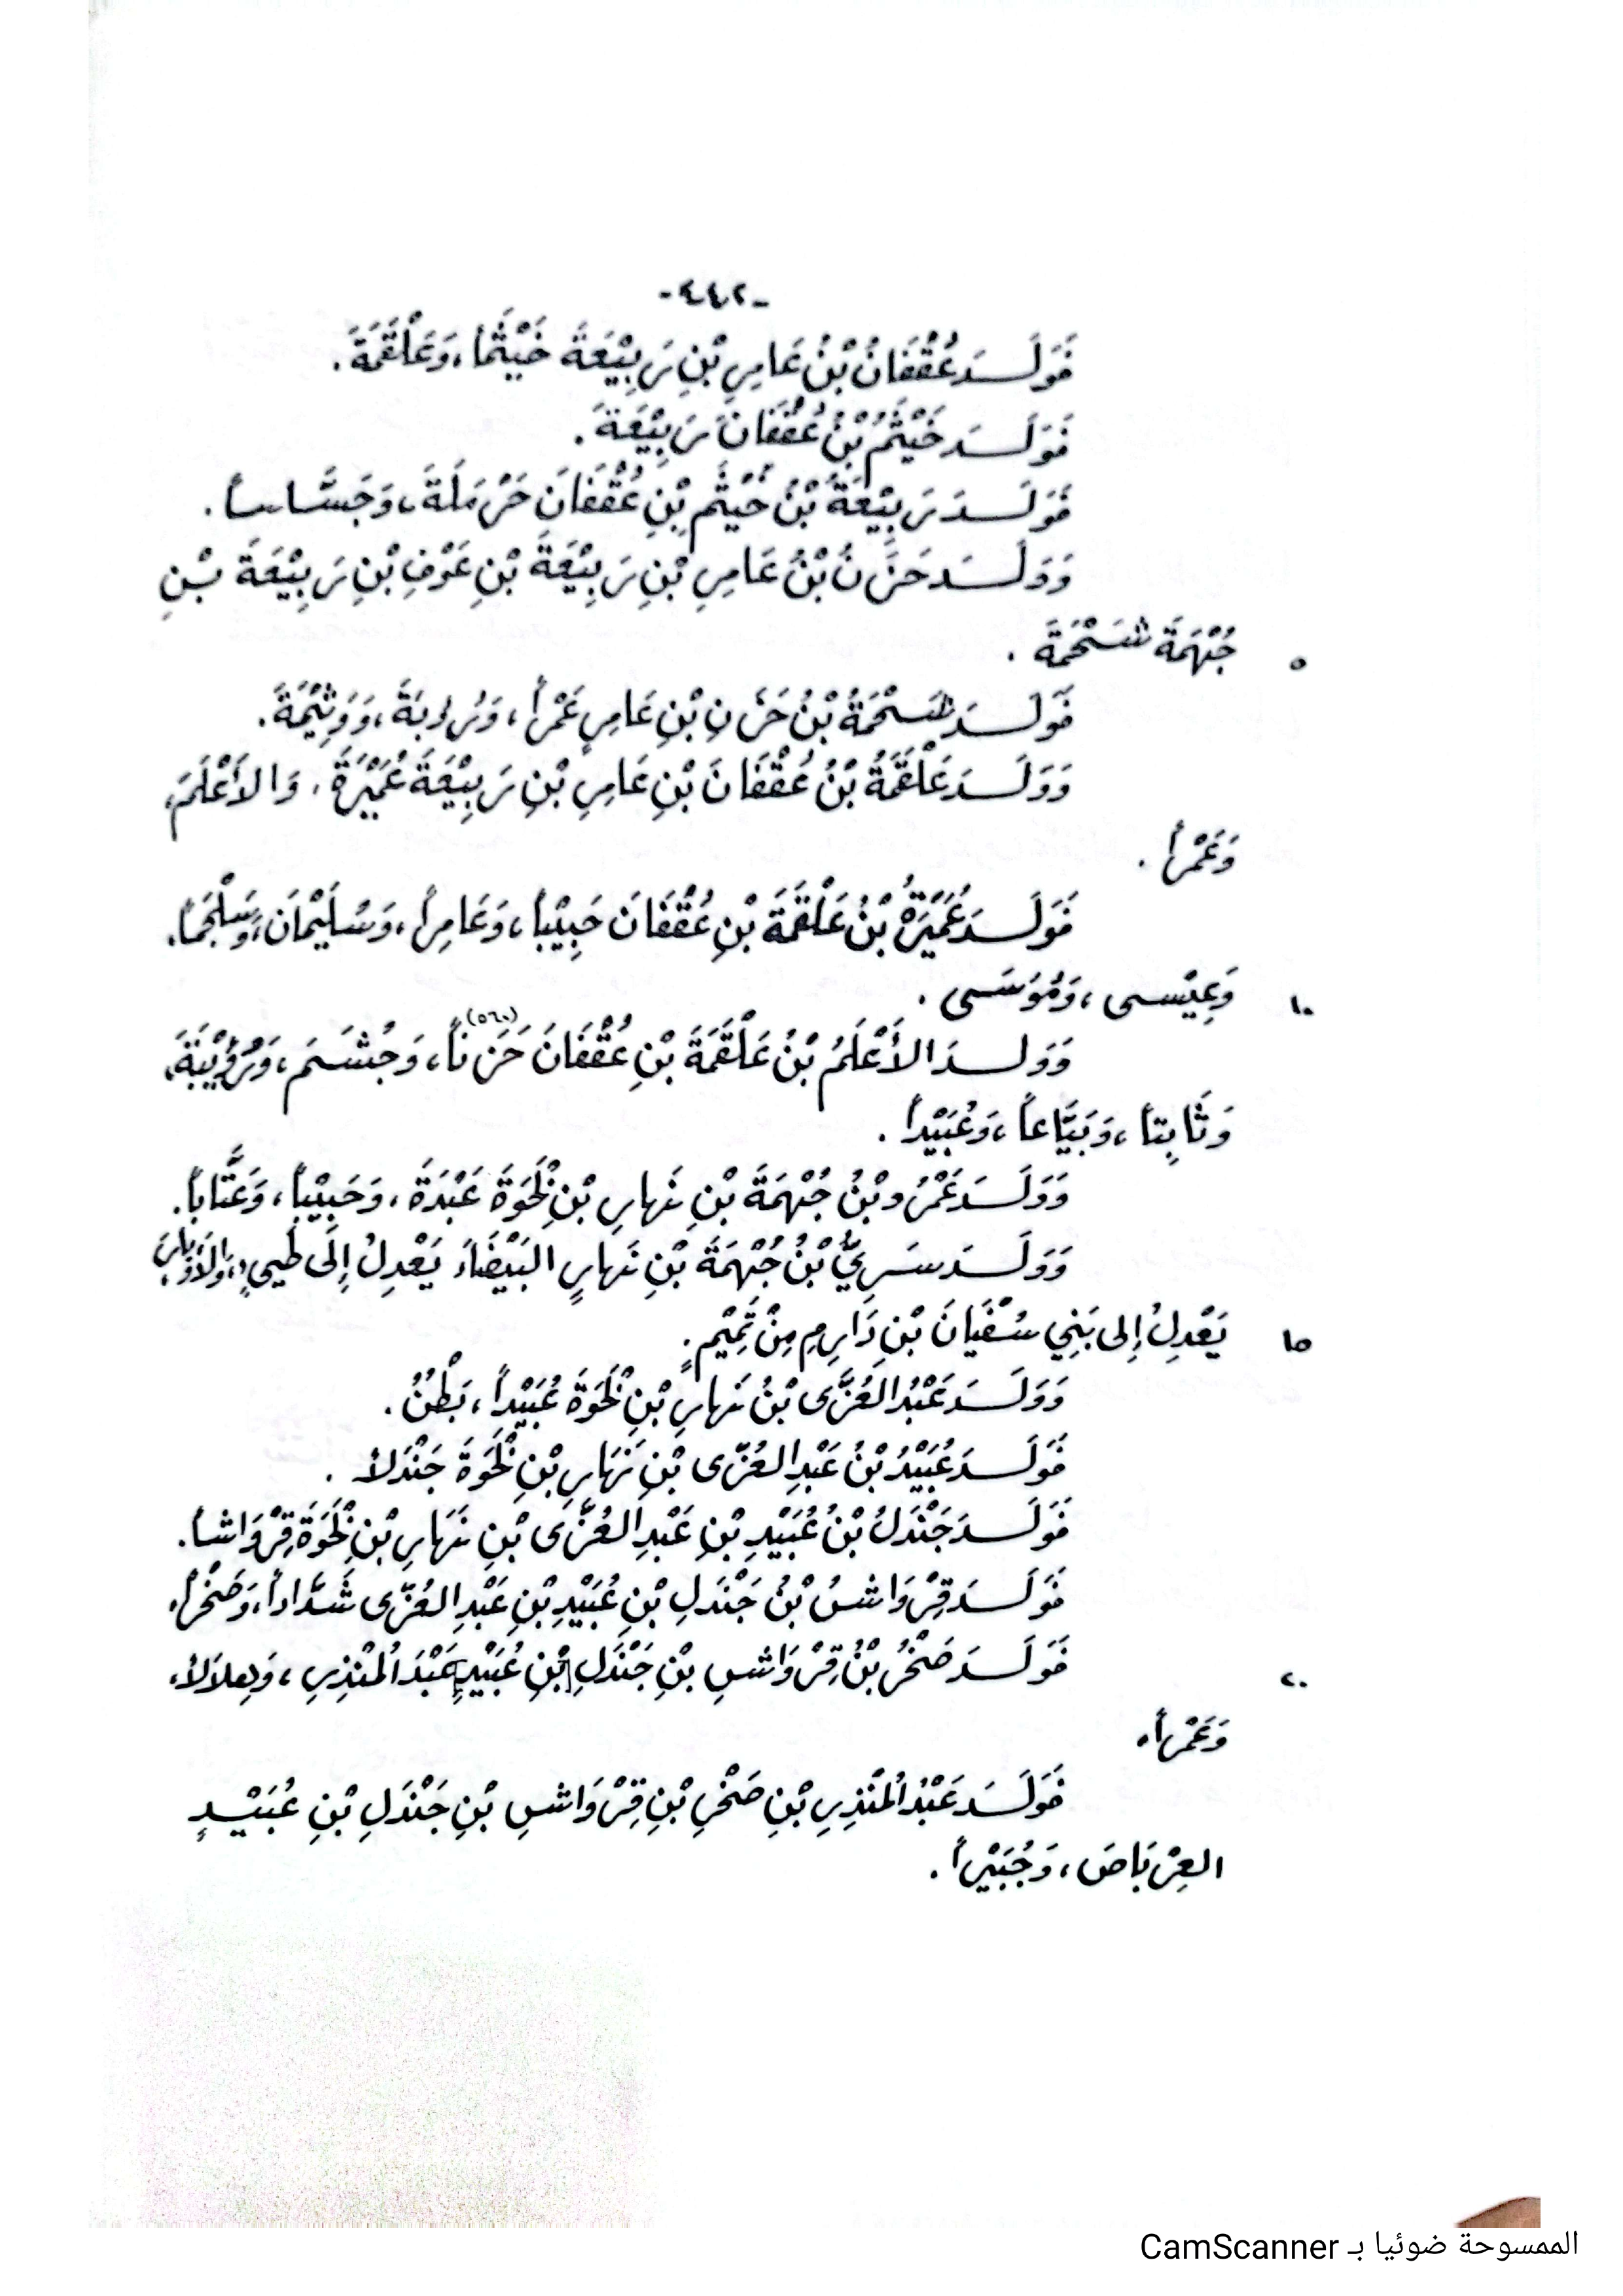 -٤٤٢-
فَوَلَدَ عُقْفَانُ بْنُ عَامِرِ بْنِ رَبِيْعَةَ خَيْثَماً، وَعَلْقَمَةَ.
فَوَلَدَ خَيْثَمُ بْنُ عُقْفَانَ رَبِيْعَةَ.
فَوَلَدَ رَبِيْعَةُ بْنُ خَيْثَمِ بْنِ عُقْفَانَ حَرْمَلَةَ، وَجَسَّاساً.
وَوَلَدَ حَزَنُ بْنُ عَامِرِ بْنِ رَبِيْعَةَ بْنِ عَوْفِ بْنِ رَبِيْعَةَ بْنِ
٥ جُهْمَةَ شَحْمَةَ.
فَوَلَدَ شَحْمَةُ بْنُ حَزَنِ بْنِ عَامِرٍ عَمْراً، وَرُدبَةَ، وَوَثِيْمَةَ.
وَوَلَدَ عَلْقَمَةُ بْنُ عُقْفَانَ بْنِ عَامِرِ بْنِ رَبِيْعَةَ عُمَيْرَةَ، وَالأَعْلَمَ،
وَعَمْراً.
فَوَلَدَ عُمَيْرَةُ بْنُ عَلْقَمَةَ بْنِ عُقْفَانَ حَبِيْباً، وَعَامِراً، وَسُلَيْمَانَ، وَسَلْجَماً،
١٠ وَعِيْسى، وَمُوْسَى.
وَوَلدَ الأَعْلَمُ بْنُ عَلْقَمَةَ بْنِ عُقْفَانَ حَزَناً(٥٦٠)، وَجُشَمَ،
وَثَابِتاً، وَبَيَّاعاً، وَعُبَيْداً.
وَوَلَدَ عَمْرُو بْنُ جُهْمَةَ بْنِ نَهارِ بْنِ لَخْوَةَ عَبْدَةَ، وَحَبِيْباً، وَعَتَّاباً.
وَوَلَدَ سَرِيُّ بْنُ جُهْمَةَ بْنِ نَهارٍ البَيْضَاءَ يَعْدِلُ إِلَى طَيىءٍ،
١٥ يَعْدِلُ إِلى بَنِي سُفْيَانَ بْنِ دَارِمِ مِنْ تَمِيْمٍ.
وَوَلَدَ عَبْدُ العُزَّى بْنُ نَهارِ بْنِ لَخْوَةَ عُبَيْداً، بَطْنٌ.
فَوَلَدَ عُبَيْدُ بْنُ عَبْدِ العُزّى بْنِ نَهَارِ بْنِ لَخْوَةَ جَنْدَلاً.
فَوَلَدَ جَنْدَلُ بْنُ عُبَيْدِ بْنِ عَبْدِ العُزَّى بْنِ نَهَارِ بْنِ لَخْوَةَ قِرْوَاشاً.
فَوَلَدَ قِرْوَاشُ بْنُ جَنْدَلِ بْنِ عُبَيْدِ بْنِ عَبْدِ العُزّى شَدَّاداً، وَصَخْراً.
٢٠ فَوَلَدَ صَخْرُ بْنُ قِرْوَاشِ بْنِ جَنْدَلِ [بْنِ عُبَيْدٍ] عَبْدَ المُنْذِرِ، وَهِلاَلاً،
وَعَمْراً.
فَوَلَدَ عَبْدُ المُنْذِرِ بْنِ صَخْرِ بْنِ قِرْوَاشِ بْنِ جَنْدَلِ بْنِ عُبَيْدٍ
العِرْبَاضَ، وَجُبَيْراً.
الممسوحة ضوئيا بـ CamScanner